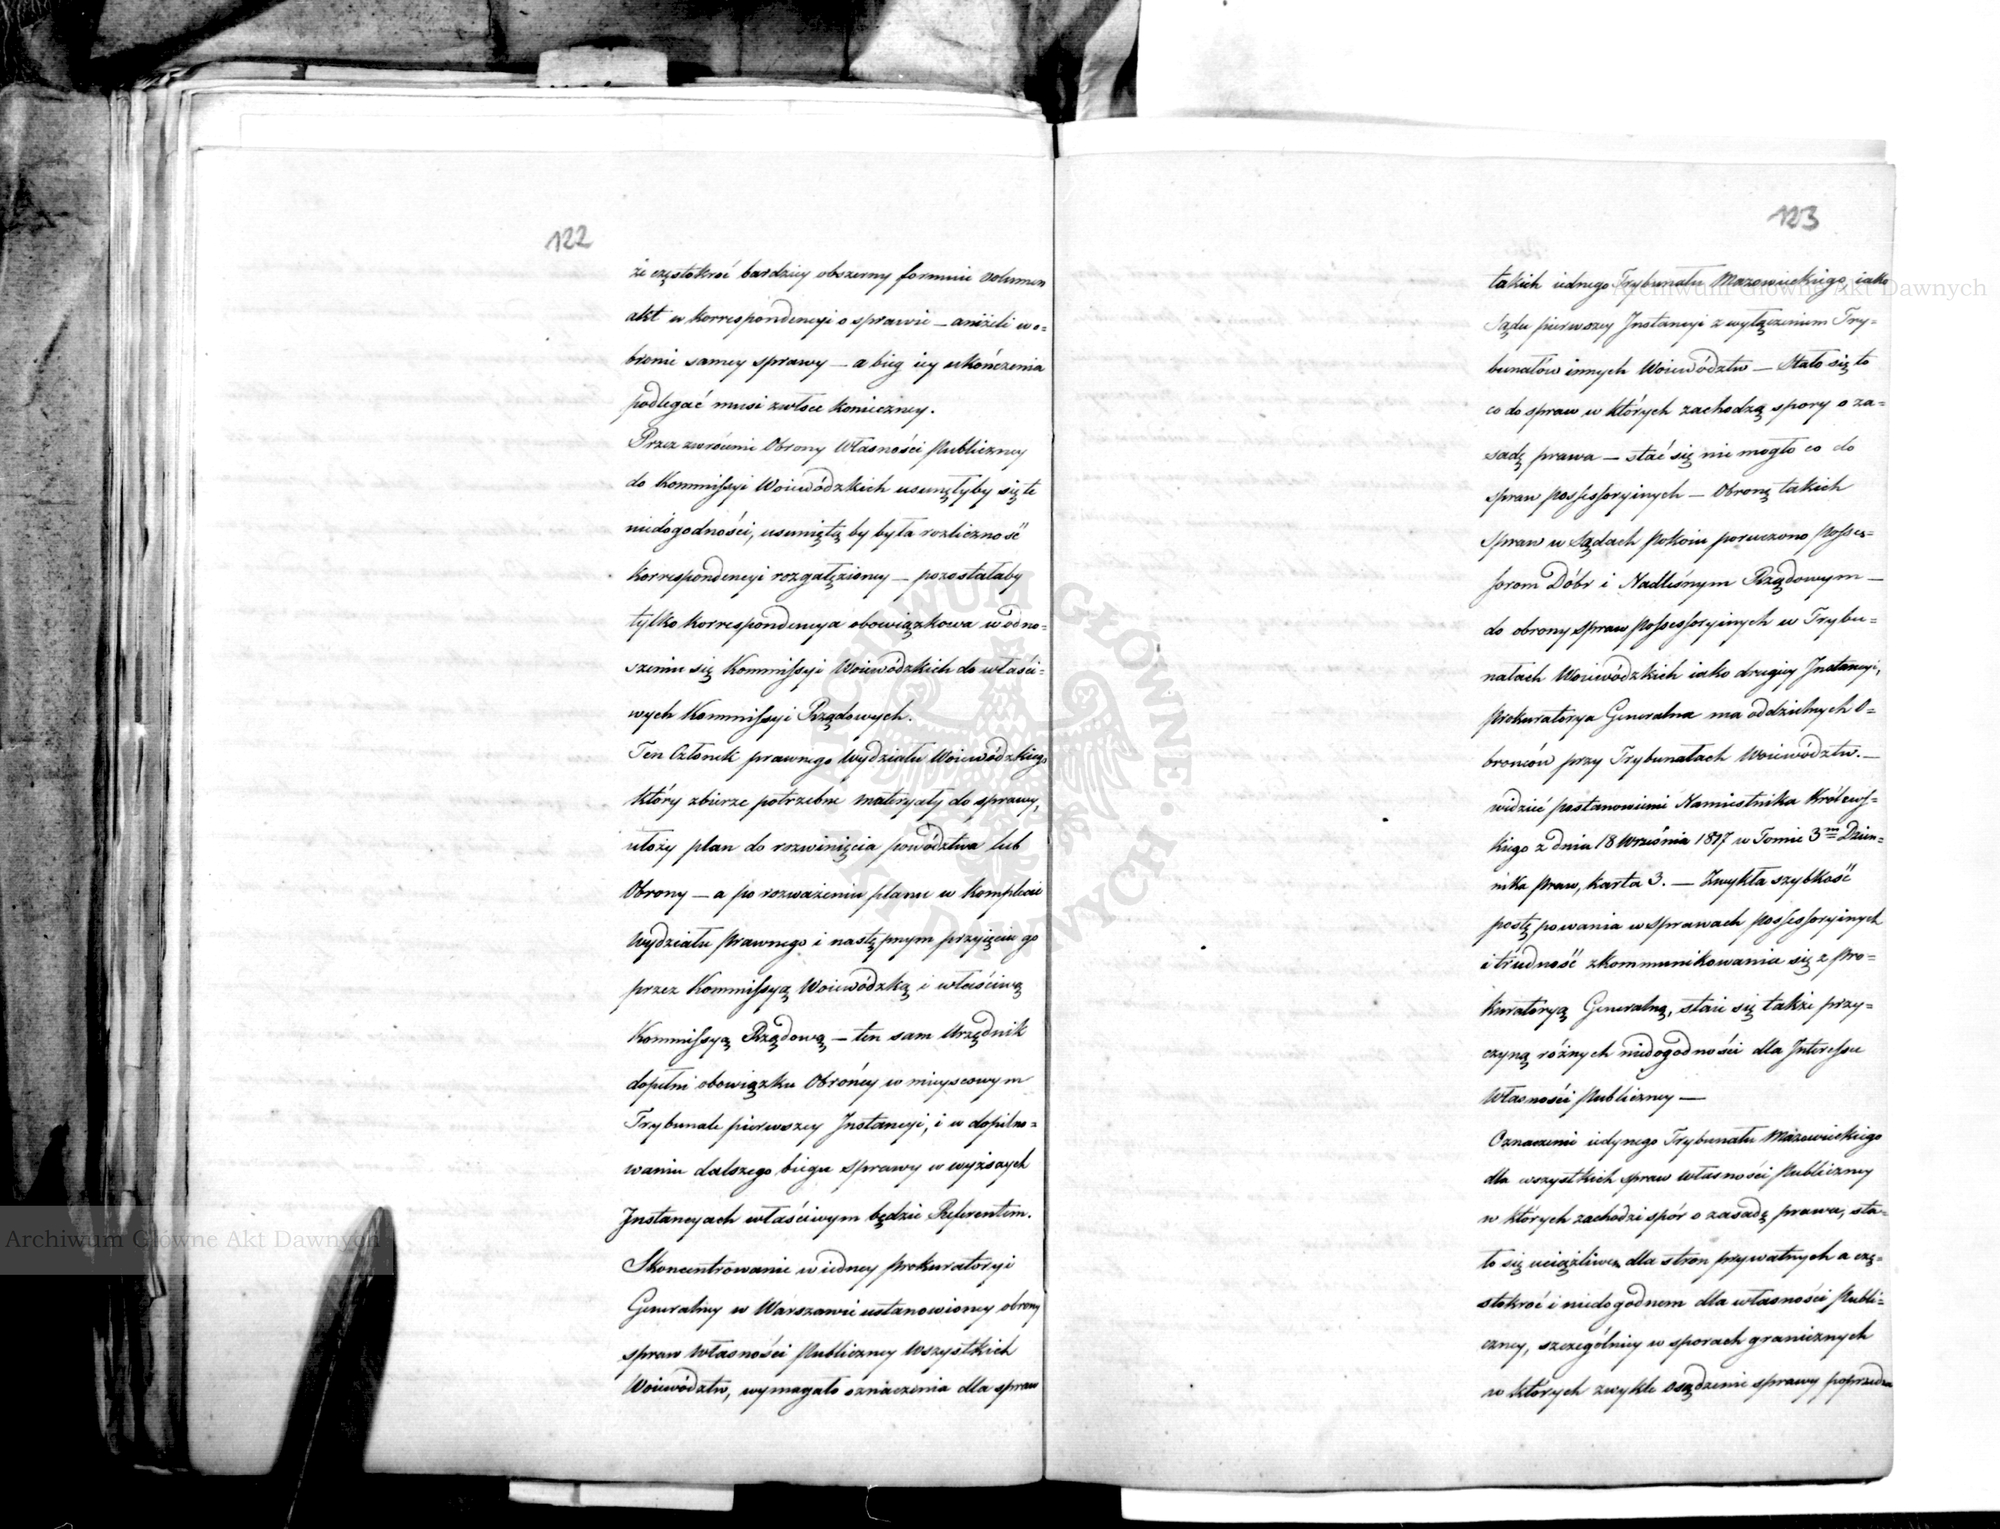 122
że częstokroć bardziey obszerny formuie volumen
akt w korrespondencyi o sprawie — aniżeli w o-
bronie samey sprawy — a bieg iey ukończenia
podlegać musi zwłoce konieczney.
Przez zwrócenie Obrony Własności Publiczney
do Kommissyi Woiewódzkich usunęłyby się te
niedogodności, usuniętą by była rozliczność
korrespondencyi rozgałęzioney — pozostałaby
tylko korrespondencya obowiązkowa w odno-
szeniu się Kommissyi Woiewódzkich do właści-
wych Kommissyi Rządowych.
Ten Członek prawnego Wydziału Woiewódzkiego
który zbierze potrzebne materyały do sprawy,
ułoży plan do rozwinięcia powództwa lub
Obrony — a po rozważeniu planu w komplecie
Wydziału Prawnego i następnym przyięciu go
przez Kommissyą Woiewódzką i właściwą
Kommissyą Rządową — ten sam Urzędnik
dopełni obowiązku Obrońcy w mieyscowym
Trybunale pierwszey Instancyi, i w dopilno-
waniu dalszego biegu sprawy w wyższych
Instancyach właściwym będzie Referentem.
Skoncentrowanie w iedney Prokuratoryi
Generalney w Warszawie ustanowioney obrony
spraw Własności Publiczney Wszystkich
Woiewództw, wymagało oznaczenia dla spraw
123
takich iednego Trybunału Mazowieckiego iako
Sądu pierwszey Instancyi z wyłączeniem Try-
bunałów innych Woiewództw — Stało się to
co do spraw w których zachodzą spory o za-
sadę prawa — stać się nie mogło co do
spraw possessoryinych — Obronę takich
spraw w Sądach Pokoiu poruczono Posses-
sorom Dóbr i Nadleśnym Rządowym —
do obrony spraw Possessoryinych w Trybu-
nałach Woiewódzkich iako drugiey Instancyi,
Prokuratorya Generalna ma oddzielnych O-
brońców przy Trybunałach Woiewództw. —
widzieć postanowienie Namiestnika Królews-
kiego z dnia 18 Września 1817 w Tomie 3m Dzien-
nika Praw, karta 3. — Zwykła szybkość
postępowania w sprawach possessoryinych
i trudność zkommunikowania się z Pro-
kuratoryą Generalną, staie się także przy-
czyną różnych niedogodności dla Interessu
Własności Publiczney —
Oznaczenie iedynego Trybunału Mazowieckiego
dla wszystkich spraw własności Publiczney
w których zachodzi spór o zasadę prawa, sta-
ło się uciążliwem dla stron prywatnych a czę-
stokroć i niedogodnem dla własności Publi-
czney, szczególniey w sporach granicznych
w których zwykle osądzenie sprawy poprzedza
Archiwum Główne Akt Dawnych
Archiwum Główne Akt Dawnych
ARCHIWUM GŁÓWNE AKT DAWNYCH